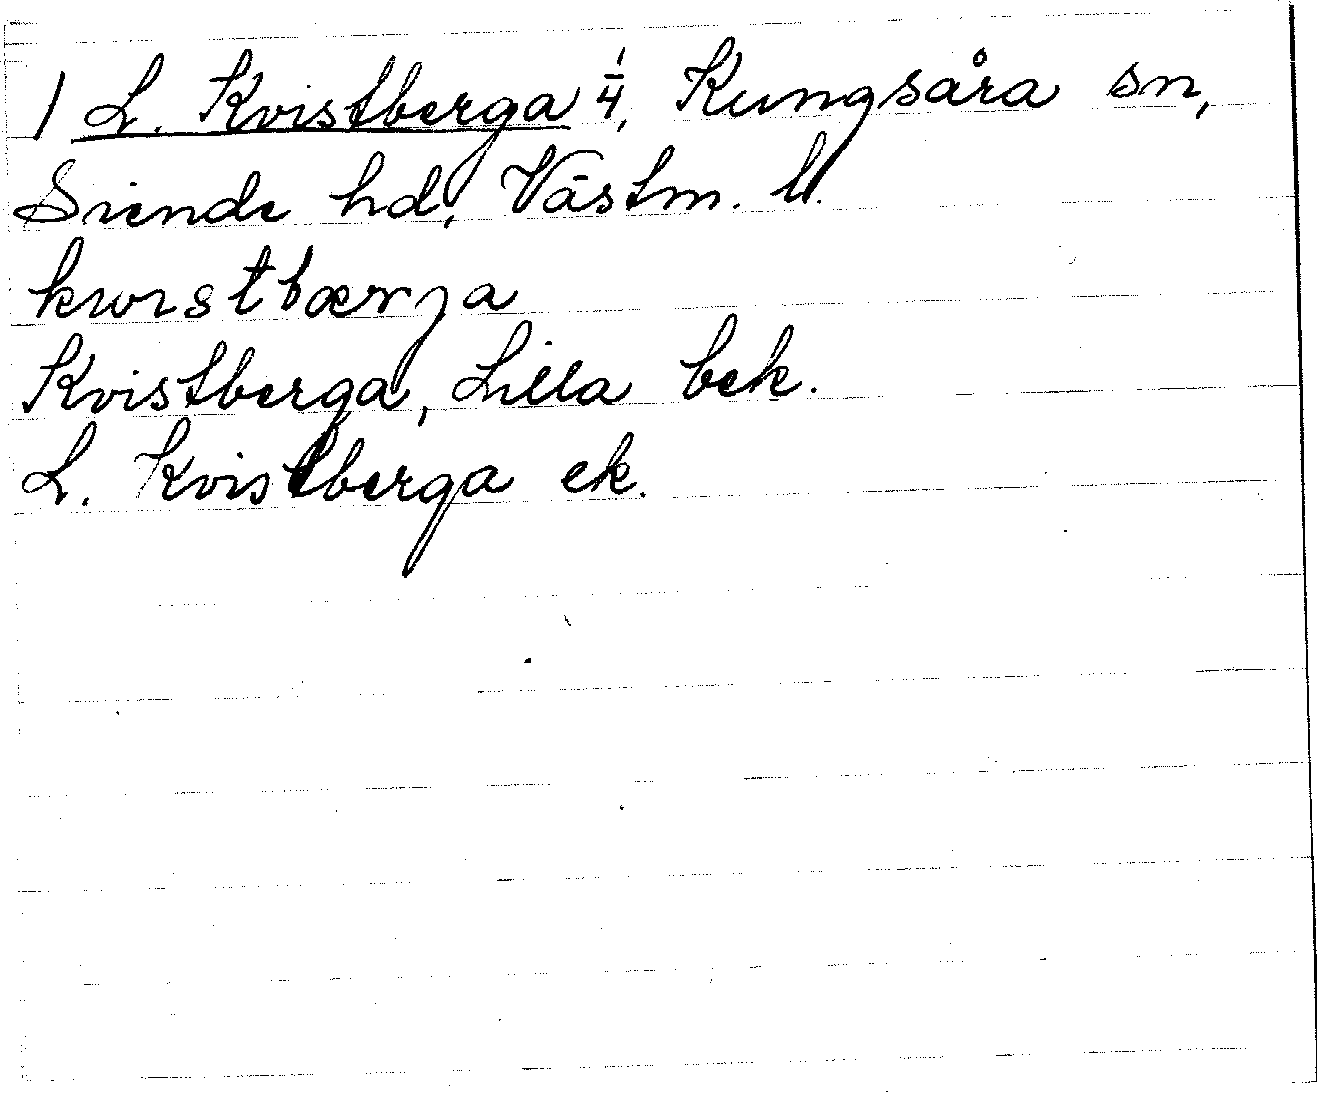 1 L. Kvistberga 1/4, Kungsåra sn,
Siende hd, Västm. ll.
kwıstbærja
Kvistberga, Lilla bek.
L. Kvistberga ek.